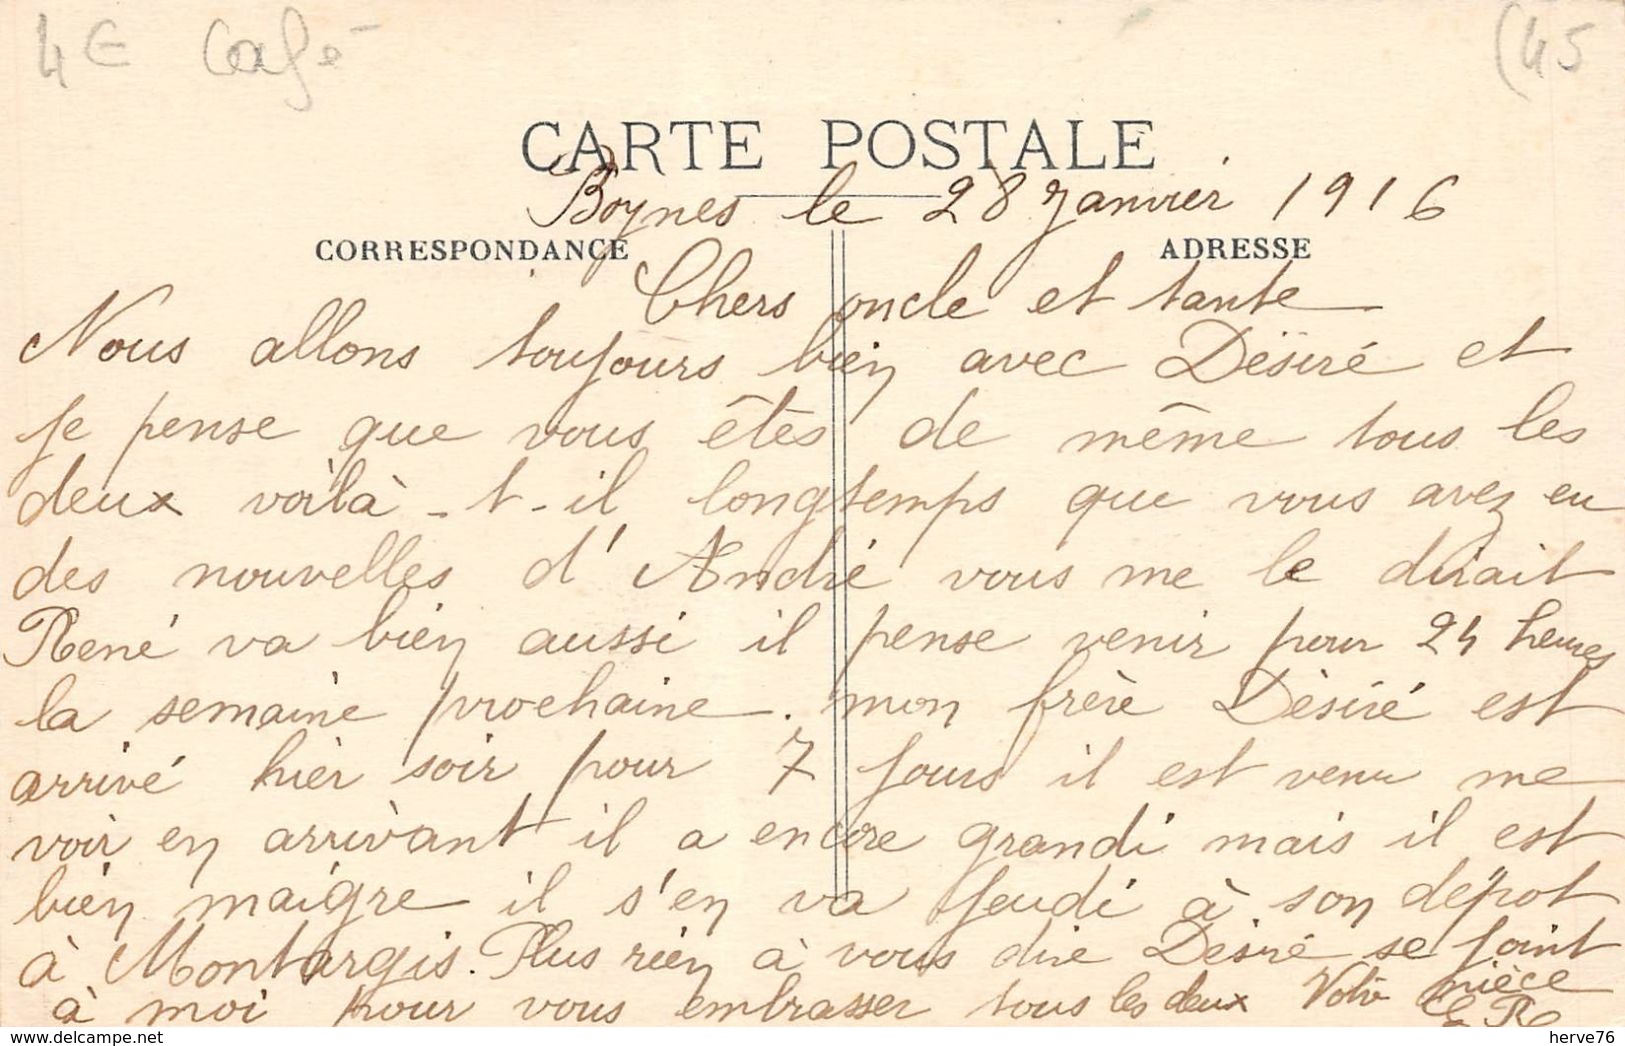 4€ Café (45
CARTE POSTALE
Boynes le 28 Janvier 1916
CORRESPONDANCE ADRESSE
Chers oncle et tante
Nous allons toujours bien avec Désiré et
je pense que vous êtes de même tous les
deux voilà-t-il longtemps que vous avez eu
des nouvelles d'André vous me le dirait
René va bien aussi il pense venir pour 24 heures
la semaine prochaine. mon frère Désiré est
arrivé hier soir pour 7 jours il est venu me
voir en arrivant il a encore grandi mais il est
bien maigre il s'en va jeudi à son dépot
à Montargis. Plus rien à vous dire Désiré se joint
à moi pour vous embrasser tous les deux Votre nièce
herve76